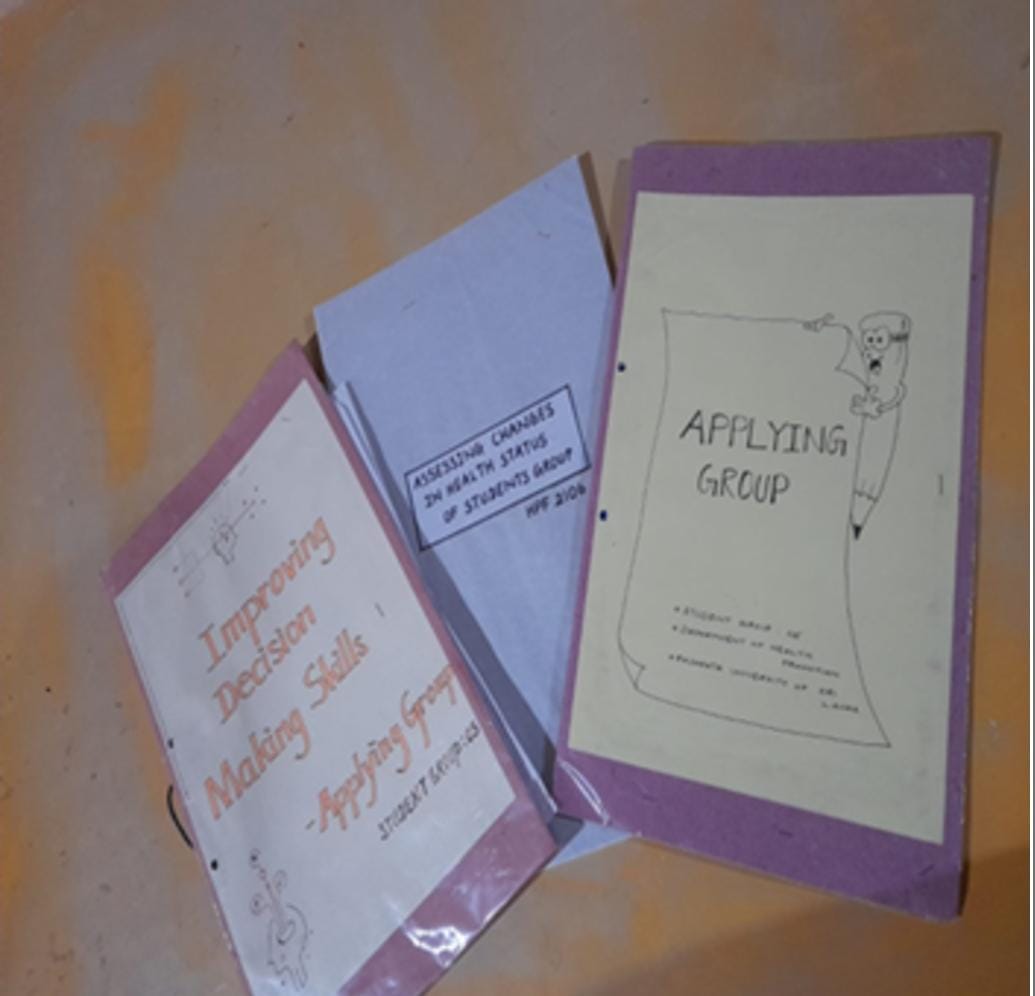 Improving
Decision
Making Skills
-Applying Group
STUDENT GROUP-
ASSESSING CHANGES
IN HEALTH STATUS
OF STUDENTS GROUP
HPF 2106
APPLYING
GROUP
STUDENT GROUP
DEPARTMENT OF HEALTH
PROMOTION
UNIVERSITY OF SRI
LANKA